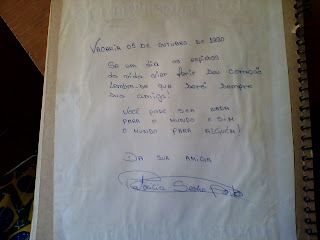 VACARIA 05 DE OUTUBRO DE 1990
Se um dia os espinhos
da vida ferir seu coração
Lembre-se que serei sempre
sua amiga!
VOCÊ PODE SER NADA
PARA O MUNDO E SIM
O MUNDO PARA ALGUÉM!
DA SUA AMIGA
Patricia